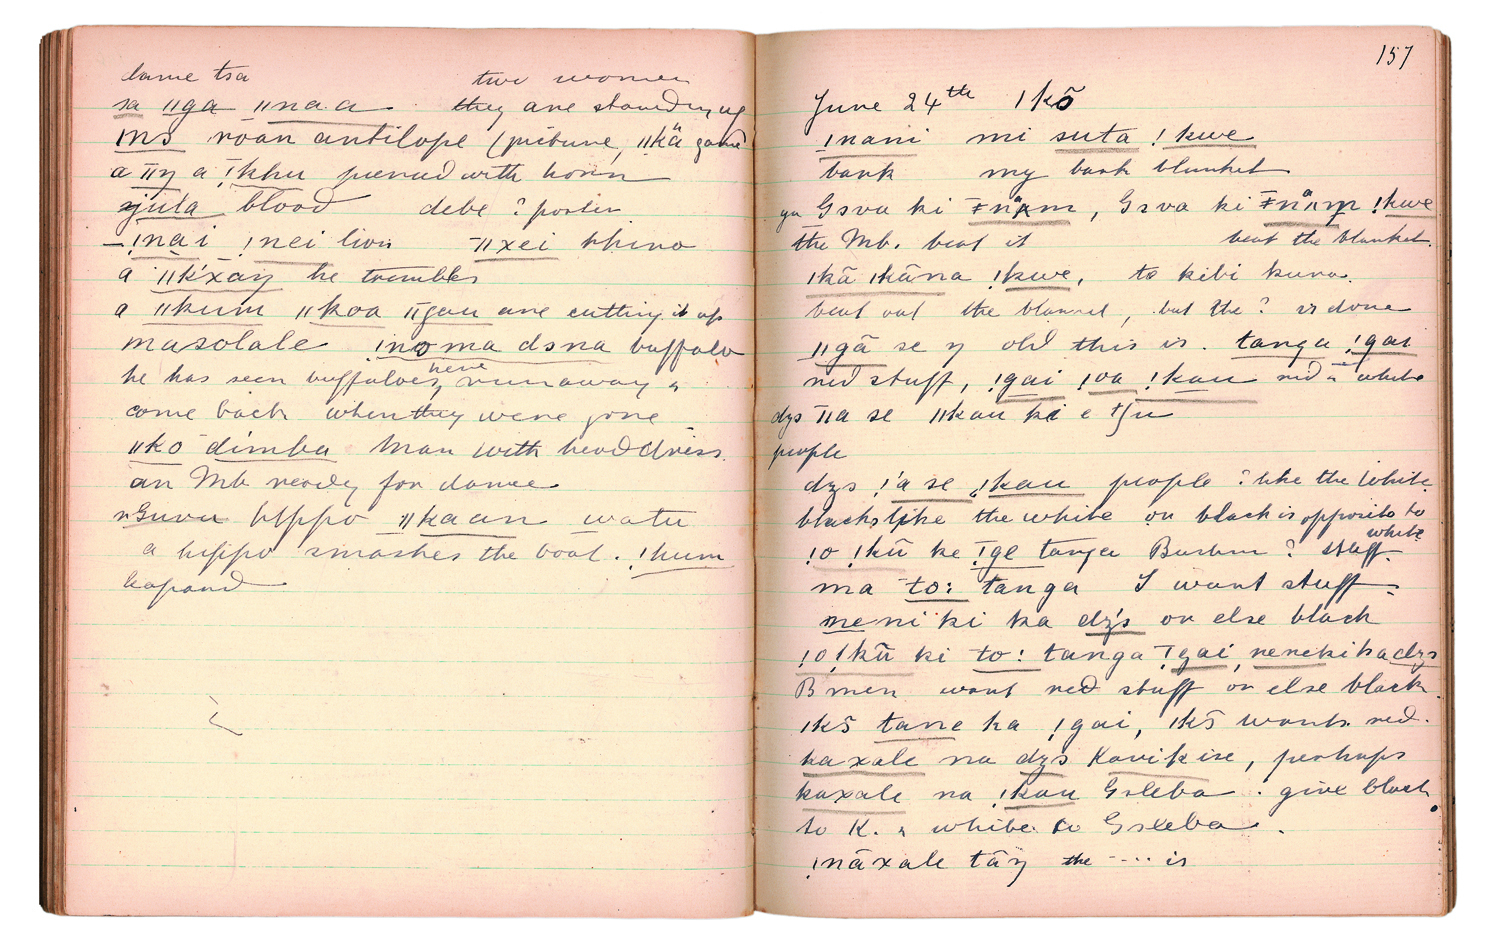 lame tsa two women
sa ǁga ǁna.a. they are standing up
ǀns roan antilope (picture, ǁkä game
a ǁŋ a ǃkhu pierced with horn
ʒjula blood debe ? porter
ǃnai ǃnei lion ǁxei rhino
a ǁk'xaŋ he trembles
a ǁkum ǁkoa ǁgau are cutting it up
masolale ǃnoma dsna buffalo
he has seen buffaloes, here runaway &
come back when they were gone
ǁko dimba Man with headdress.
an Mb ready for dance
nGuvu hippo ǁkaan water
a hippo smashes the boat. ǃhum
leopard
157
June 24th ǀkō
ǃnani mi suta ǃkwe
bark my bark blanket
ya Gsva ki ǂnåm, Gsva ki ǂnåm ǃkwe
the Mb. beat it beat the blanket.
ǀkā ǀkāna ǃkwe, ta kibi kuna.
beat out the blanket, but the ? is done
ǁgā se ŋ old this is. tanga ǃgai
red stuff, ǃgai ǃoa ǃkau red & white
dʒs ǁa se ǁkau ki e tʃu
people
dʒs ǃ'a se ǃkau people ? like the white
blacks like the white or black is opposite to
white
ǃo ǃkū ke ǃge tanga Bushm ? stuff
ma to: tanga I want stuff
meni ki ka dʒs or else black
ǃo ǃkū ki to: tanga ǃgai, nenekika dʒs
B men want red stuff or else black.
ǀkō tane ka ǃgai, ǀkō wants red.
kaxale na dʒs Kavikise, perhaps
kaxale na ǃkau Gsleba. give black
to K. & white to Gsleba.
ǃnāxale tāŋ the .... is